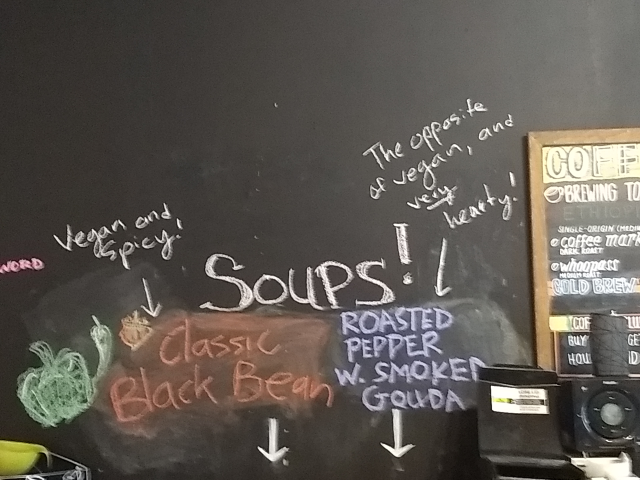 The opposite
of vegan, and
very
hearty!
Vegan and
Spicy!
WORD
Soups!
Classic
Black Bean
ROASTED
PEPPER
W. SMOKED
GOUDA
COFFE
BREWING TO
SINGLE-ORIGIN
coffee mark
DARK ROAST
whoopass
COLD BREW
BUY